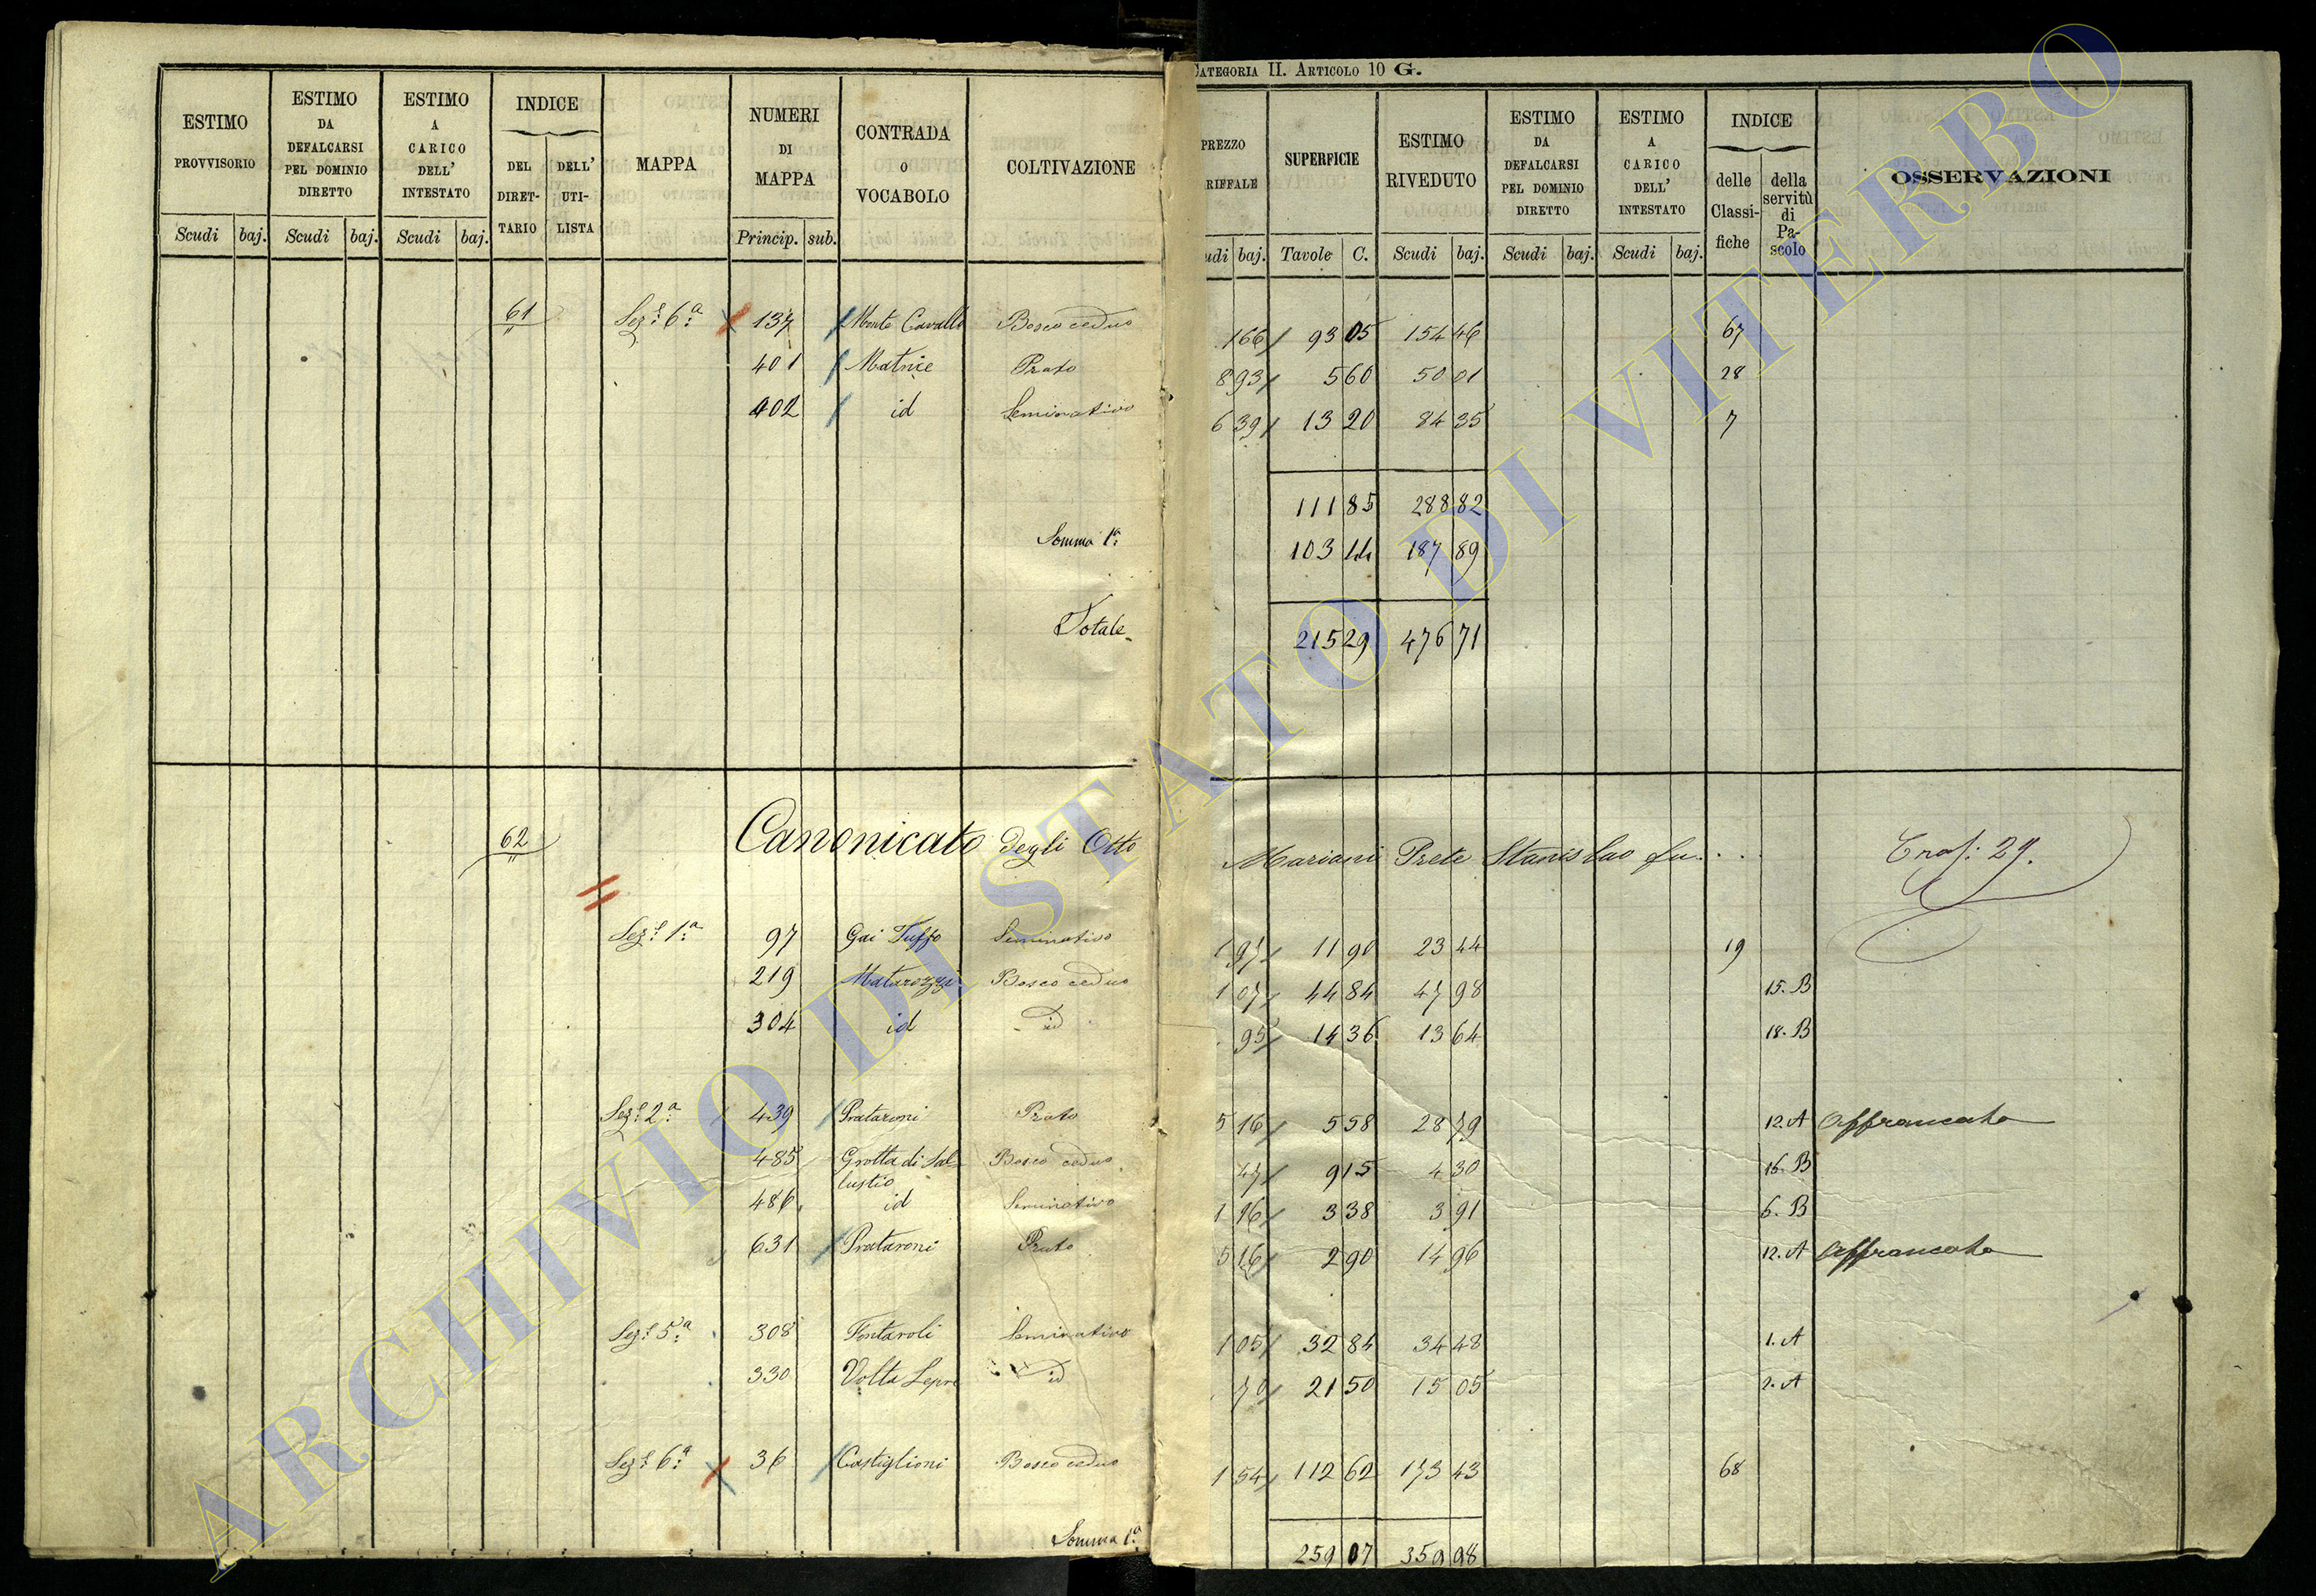 CATEGORIA II. ARTICOLO 10 G.
ESTIMO PROVVISORIO Scudi baj.
ESTIMO DA DEFALCARSI PEL DOMINIO DIRETTO Scudi baj.
ESTIMO A CARICO DELL' INTESTATO Scudi baj.
INDICE DEL DIRET-TARIO DELL' UTI-LISTA
MAPPA
NUMERI DI MAPPA Princip. sub.
CONTRADA o VOCABOLO
COLTIVAZIONE
PREZZO RIFFALE udi baj.
SUPERFICIE Tavole C.
ESTIMO RIVEDUTO Scudi baj.
ESTIMO DA DEFALCARSI PEL DOMINIO DIRETTO Scudi baj.
ESTIMO A CARICO DELL' INTESTATO Scudi baj.
INDICE delle Classi-fiche della servitù di Pa-scolo
OSSERVAZIONI
61 Sez.e 6.a 137 Monte Cavallo Bosco ceduo 1 66 93 05 154 46 67
401 Matrice Prato 8 93 5 60 50 01 28
402 id Seminativo 6 39 13 20 84 35 7
111 85 288 82
Somma 1.a 103 44 187 89
Totale 215 29 476 71
62 Canonicato degli Otto Mariani Prete Stanislao fu... 29.
Sez.e 1.a 97 Gai Tuffo Seminativo 1 97 11 90 23 44 19
219 Matarozzi Bosco ceduo 1 07 44 84 47 98 15. B
304 id id 95 14 36 13 64 18. B
Sez.e 2.a 439 Prataroni Prato 5 16 5 58 28 79 12. A Affrancato
485 Grotta di Sal Bosco ceduo 47 9 15 4 30 16. B
lustio
486 id Seminativo 1 16 3 38 3 91 6. B
631 Prataroni Prato 5 16 2 90 14 96 12. A Affrancato
Sez.e 5.a 308 Fontaroli Seminativo 1 05 32 84 34 48 1. A
330 Volta Lepre id 70 21 50 15 05 2. A
Sez.e 6.a 36 Castiglioni Bosco ceduo 1 54 112 62 173 43 68
Somma 1.a 259 07 359 98
ARCHIVIO DI STATO DI VITERBO